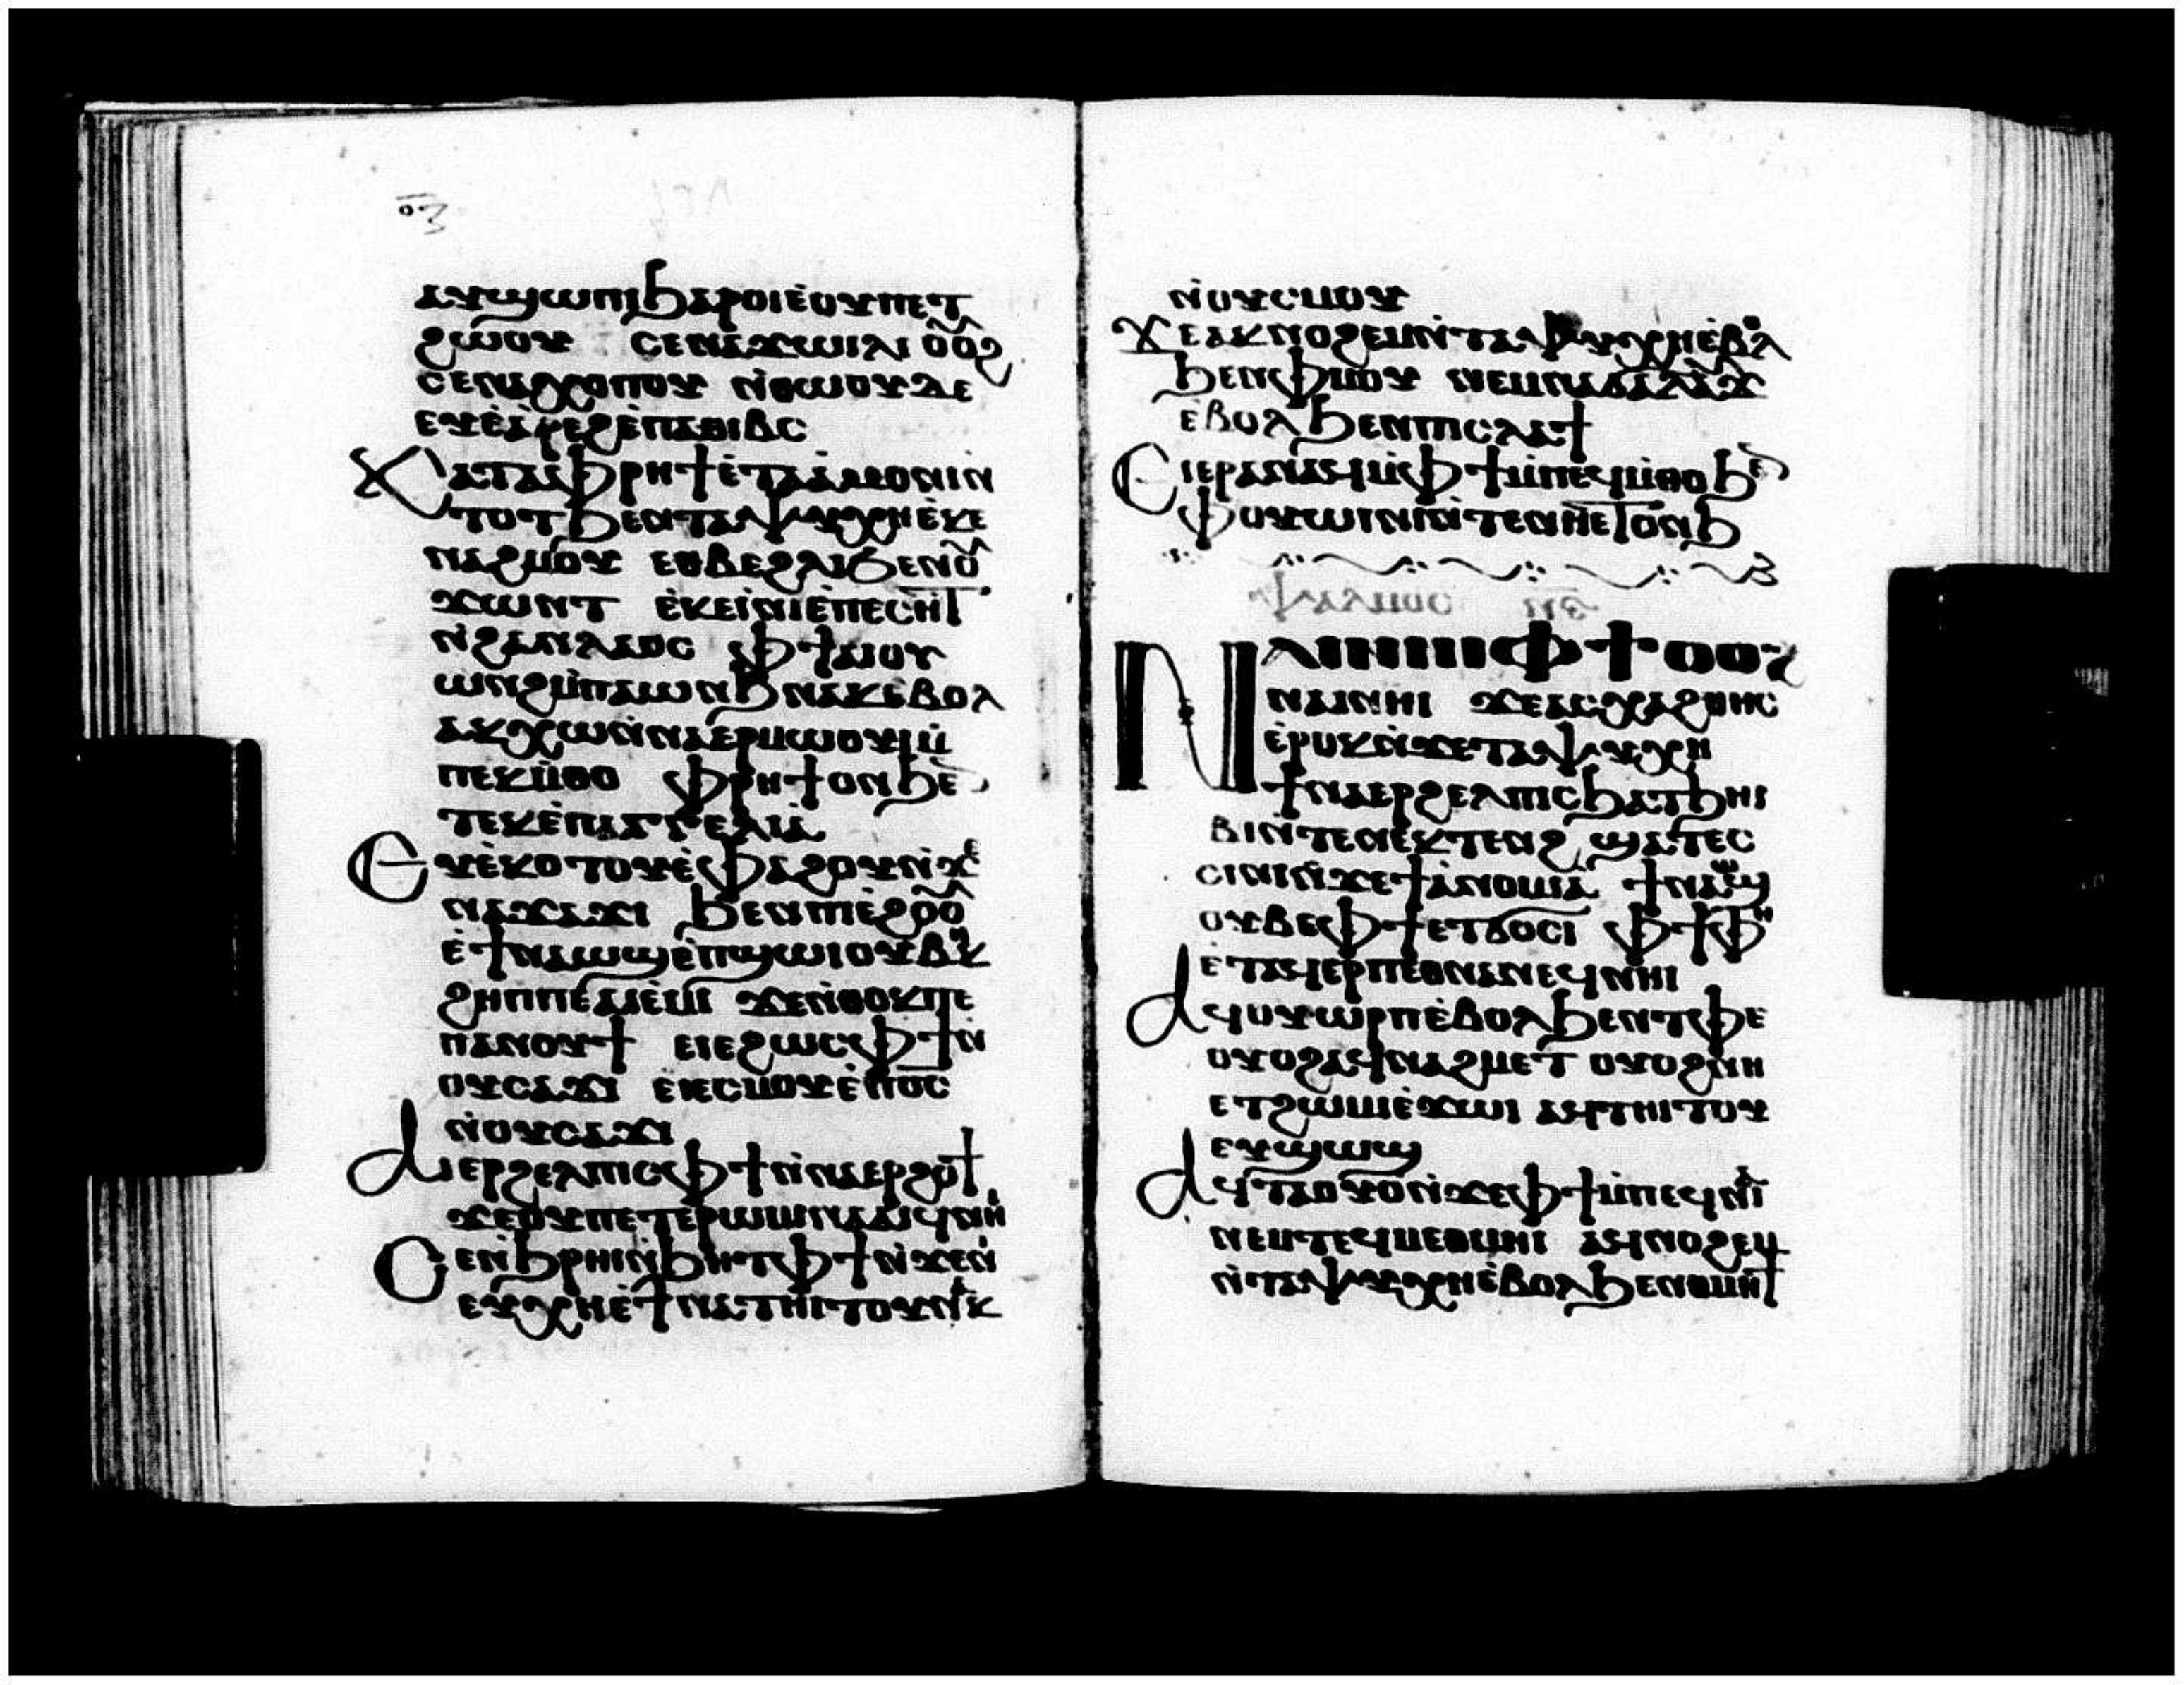 ⲁⲩϣⲱⲡⲓϧⲁⲣⲟⲓⲉ̀ⲟⲩⲡⲉⲧ
ϩⲱⲟⲩ ⲥⲉⲛⲁϫⲱⲓⲗⲓ ⲟⲟϩ
ⲥⲉⲛⲁⲭⲟⲡⲟⲩ ⲛ̀ⲑⲱⲟⲩⲇⲉ
ⲉⲩⲉ̀ⲁ̀ⲣⲉϩⲉ̀ⲡⲁⲑⲓⲃⲥ
Ⲕⲁⲧⲁⲫⲣⲏϯⲉ̀ⲧⲁⲁ̀ⲙⲟⲛⲓⲛ̀
ⲧⲟⲧϧⲉⲛⲧⲁⲯⲩⲭⲏⲉ̀ⲕⲉ
ⲛⲁϩⲙⲟⲩ ⲉⲑⲃⲉϩⲗⲓϧⲉⲛⲟ
ϫⲱⲛⲧ ⲉ̀ⲕⲉⲓ̀ⲛⲓⲉ̀ⲡⲉⲥⲏⲧ
ⲛ̀ϩⲁⲛⲗⲁⲟⲥ ⲫϯⲁⲓⲟⲩ
ⲱⲛϩⲙ̀ⲡⲁⲱⲛϧⲛⲁⲕⲉⲃⲟⲗ
ⲁⲕⲭⲱⲛ̀ⲛⲁⲉⲣⲙⲱⲟⲩⲓⲙ̀
ⲡⲉⲕⲙ̀ⲑⲟ ⲫⲣⲏϯⲟⲛϧⲉ
ⲧⲉⲕⲉ̀ⲡⲁⲅⲅⲉⲗⲓⲁ̀
Ⲉⲩⲉ̀ⲕⲟⲧⲟⲩⲉ̀ⲫⲁϩⲟⲩⲛ̀ϫⲉ
ⲛⲁϫⲁϫⲓ ϧⲉⲛⲡⲓⲉ̀ϩⲟⲟ
ⲉ̀ϯⲛⲁⲱϣⲉ̀ⲡϣⲱⲓⲟⲩⲃⲏⲕ
ϩⲏⲡⲡⲉⲁⲓⲉ̀ⲙⲓ ϫⲉⲛ̀ⲑⲟⲕⲡⲉ
ⲡⲁⲛⲟⲩϯ ⲉⲓⲉϩⲱⲥⲫϯⲛ̀
ⲟⲩⲥⲁϫⲓ ⲉⲓⲉⲥⲙⲟⲩⲉ̀ⲡⲟⲥ
ⲛ̀ⲟⲩⲥⲁϫⲓ
Ⲁⲓⲉⲣϩⲉⲗⲡⲓⲥⲫϯⲛ̀ⲛⲁⲉⲣϩⲟϯ
ϫⲉⲟⲩⲡⲉⲧⲉⲣⲱⲙⲓⲛⲁⲁⲓϥⲛⲏⲓ
Ⲥⲉⲛ̀ϧⲣⲏⲓⲛ̀ϧⲏⲧⲫϯⲛ̀ϫⲉⲛⲓ
ⲉⲩⲭⲏⲉ̀ϯⲛⲁⲧⲏⲓⲧⲟⲩⲛⲁⲕ
ⲛ̀ⲟⲩⲥⲙⲟⲩ
Ϫⲉⲁⲕⲛⲟϩⲉⲙⲛ̀ⲧⲁⲯⲩⲭⲏⲉ̀ⲃⲟⲗ
ϧⲉⲛⲫⲙⲟⲩ ⲛⲉⲙⲛⲁϭⲁⲗⲁⲩϫ
ⲉ̀ⲃⲟⲗϧⲉⲛⲡⲓⲥⲗⲁϯ
Ⲉⲓⲉⲣⲁⲛⲁϥⲙ̀ⲫϯⲙ̀ⲡⲉϥⲙ̀ⲑⲟϧⲉ
ⲫⲟⲩⲱⲓⲛⲓⲛ̀ⲧⲉⲛⲏⲉⲧⲟⲛϧ
ⲯⲁⲗⲙⲟⲥ ⲛⲋ
Ⲛⲁⲓⲛⲏⲓⲫϯⲟⲟϩ
ⲛⲁⲓⲛⲏⲓ ϫⲉⲁⲥⲭⲁϩⲑⲏⲥ
ⲉ̀ⲣⲟⲕⲛ̀ϫⲉⲧⲁⲯⲩⲭⲏ
ϯⲛⲁⲉⲣϩⲉⲗⲡⲓⲥϧⲁⲧϧⲏⲓ
ⲃⲓⲛ̀ⲧⲉⲛⲉⲕⲧⲉⲛϩ ϣⲁⲧⲉⲥ
ⲥⲓⲛⲓⲛ̀ϫⲉϯⲁ̀ⲛⲟⲙⲓⲁ ϯⲛⲁⲱϣ
ⲟⲩⲃⲉⲫϯⲉⲧϭⲟⲥⲓ ⲫϯⲫⲏ
ⲉ̀ⲧⲁϥⲉⲣⲡⲉⲑⲛⲁⲛⲉϥⲛⲏⲓ
Ⲁϥⲟⲩⲱⲣⲡⲉ̀ⲃⲟⲗϧⲉⲛⲧⲫⲉ
ⲟⲩⲟϩⲁϥⲛⲁϩⲙⲉⲧ ⲟⲩⲟϩⲛⲏ
ⲉⲧϩⲱⲙⲓⲉ̀ϫⲱⲓ ⲁϥⲧⲏⲓⲧⲟⲩ
ⲉⲩϣⲱϣ
Ⲁϥⲧⲁⲟⲩⲟⲛ̀ϫⲉⲫϯⲙ̀ⲡⲉϥⲛⲁⲓ
ⲛⲉⲙⲧⲉϥⲙⲉⲑⲙⲏⲓ ⲁϥⲛⲟϩⲉⲙ
ⲛ̀ⲧⲁⲯⲩⲭⲏⲉ̀ⲃⲟⲗϧⲉⲛⲑⲙⲏϯ